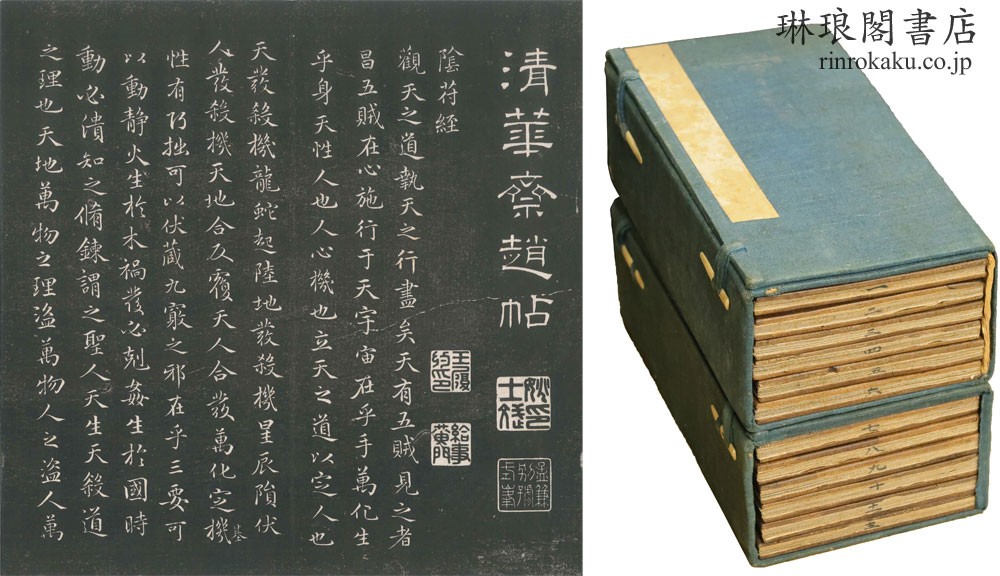 清華齋趙帖
陰符經
觀天之道執天之行盡矣天有五賊見之者
昌五賊在心施行于天宇宙在乎手萬化生
乎身天性人也人心機也立天之道以定人也
天發殺機龍蛇起陸地發殺機星辰隕伏
人發殺機天地合反覆天人合發萬化定機
基
性有巧拙可以伏藏九竅之邪在乎三要可
以動靜火生於木禍發必剋姦生於國時
動必潰知之脩鍊謂之聖人天生天殺道
之理也天地萬物之理盜萬物人之盜人萬
給事
黃門
琳琅閣書店
rinrokaku.co.jp
二
三
四
五
六
七
八
九
十
十一
十二